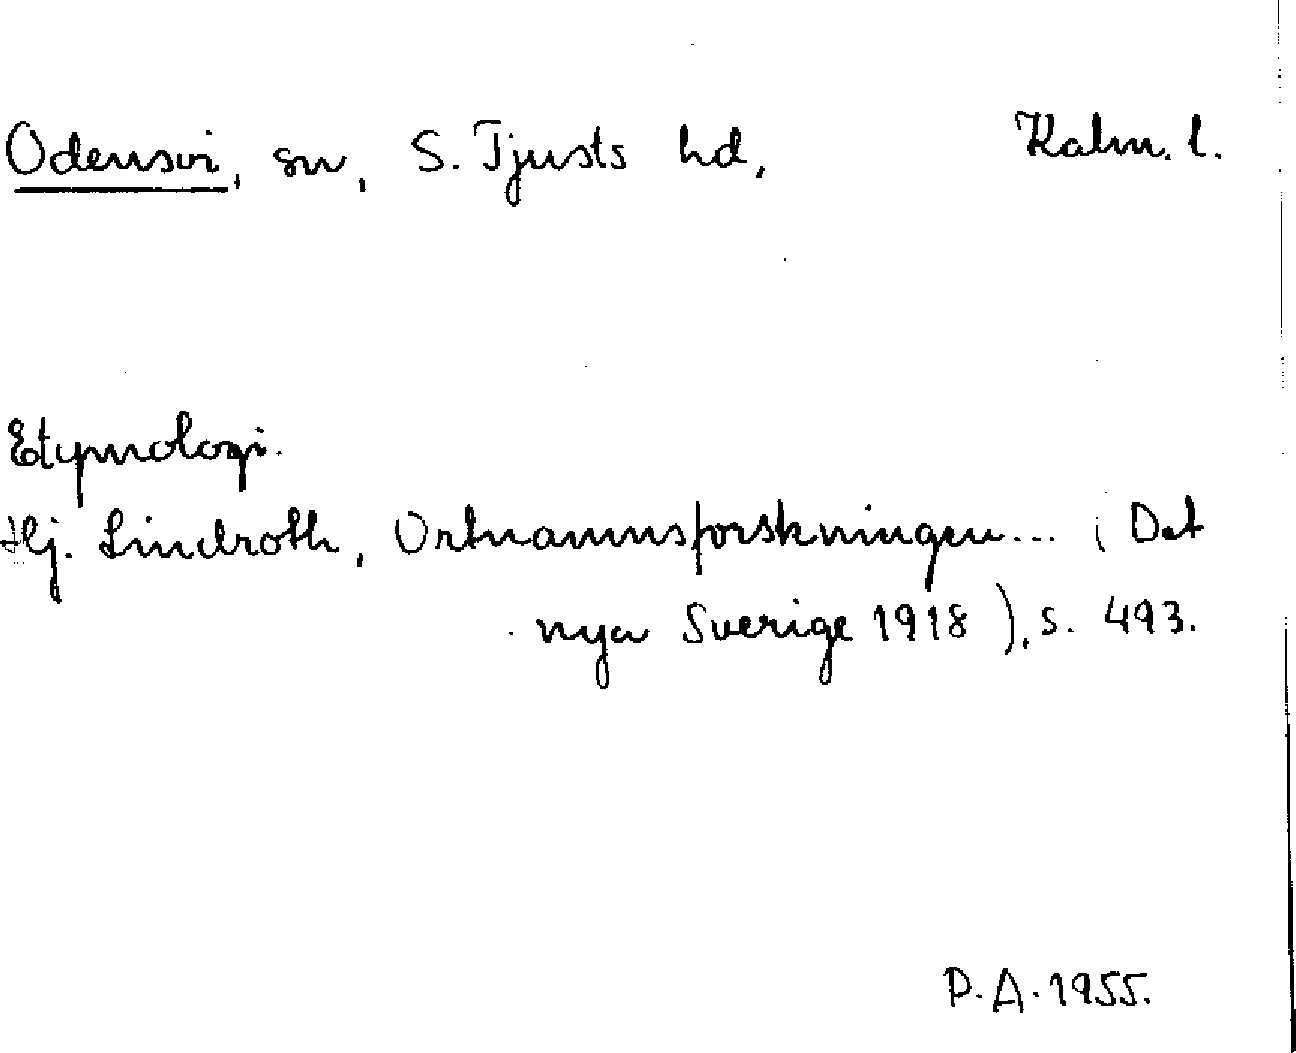 Odensvi, sn, S. Tjusts hd, Kalm. l.
Etymologi.
Hj. Lindroth, Ortnamnsforskningen... i Det
nya Sverige 1918), s. 493.
P.A. 1955.